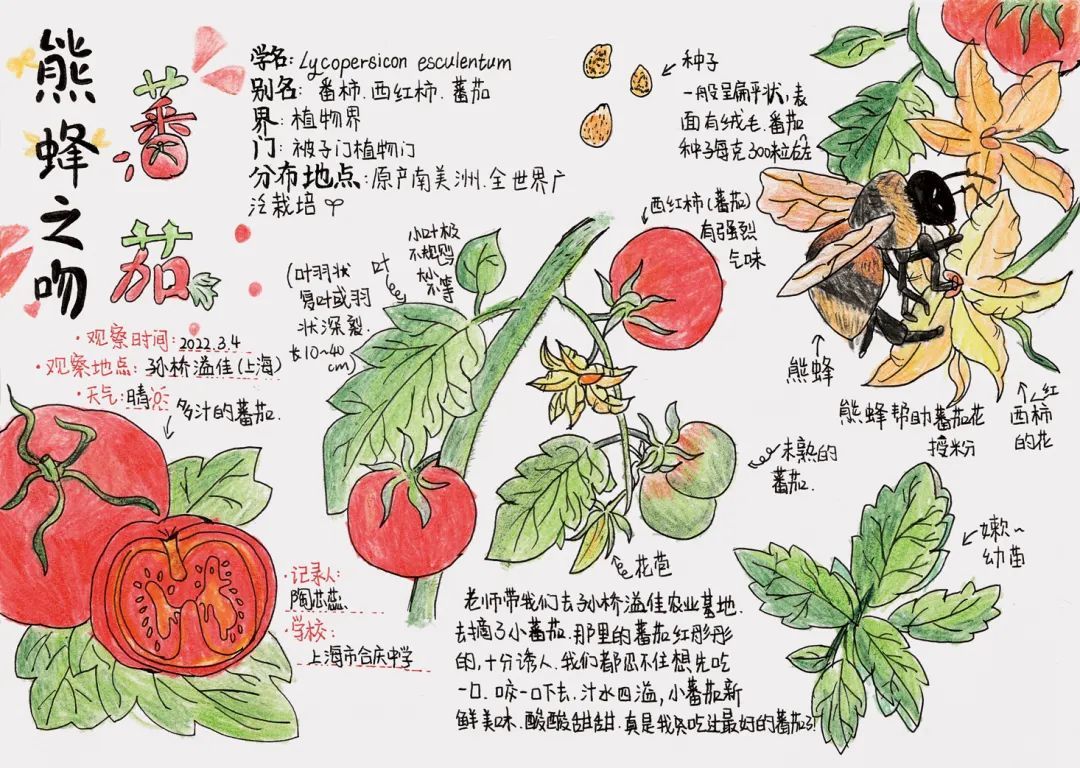 熊蜂之吻
蕃茄
学名: Lycopersicon esculentum
别名: 番柿.西红柿.蕃茄
界: 植物界
门: 被子门植物门
分布地点: 原产南美洲.全世界广
泛栽培
·观察时间: 2022.3.4
·观察地点: 孙桥溢佳(上海)
·天气: 晴
多汁的蕃茄.
种子
一般呈扁平状,表
面有绒毛.番茄
种子每克300粒左右
小叶极
不规则
大小
不等
叶
(叶羽状
复叶或羽
状深裂.
长10~40
cm)
西红柿(蕃茄)
有强烈
气味
熊蜂
熊蜂帮助蕃茄花
授粉
红
西柿
的花
未熟的
蕃茄.
花苞
嫩~
幼苗
·记录人:
陶芯蕊
·学校:
上海市合庆中学
老师带我们去孙桥溢佳农业基地.
去摘了小蕃茄.那里的蕃茄红彤彤
的,十分诱人.我们都忍不住想先吃
一口.咬一口下去.汁水四溢,小蕃茄新
鲜美味.酸酸甜甜.真是我吃过最好的蕃茄了!